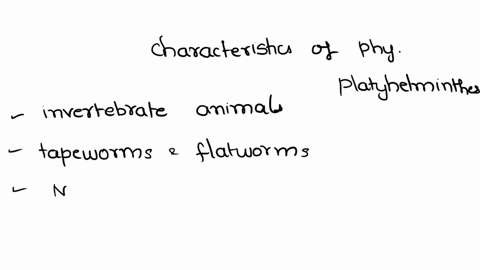 characteristics of phy.
platyhelminthes
- invertebrate animals
- tapeworms & flatworms
- N